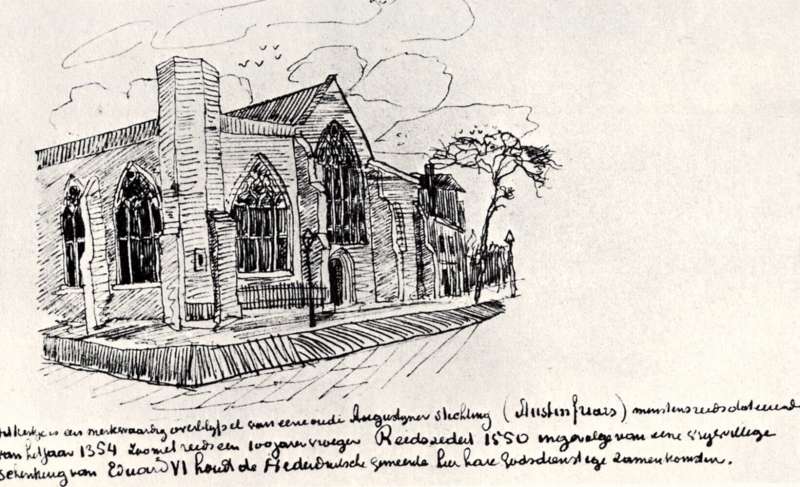 Dit kerkje is een merkwaardig overblijfsel van eene oude Augustyner stichting (Austin friars) minstens reeds dateerende
van het jaar 1354 zoo niet reeds een 100 jaren vroeger Reeds sedert 1550 ingevolge van eene vrywillige
schenking van Eduard VI houdt de Nederduitsche gemeente hier hare Godsdienstige zamenkomsten.